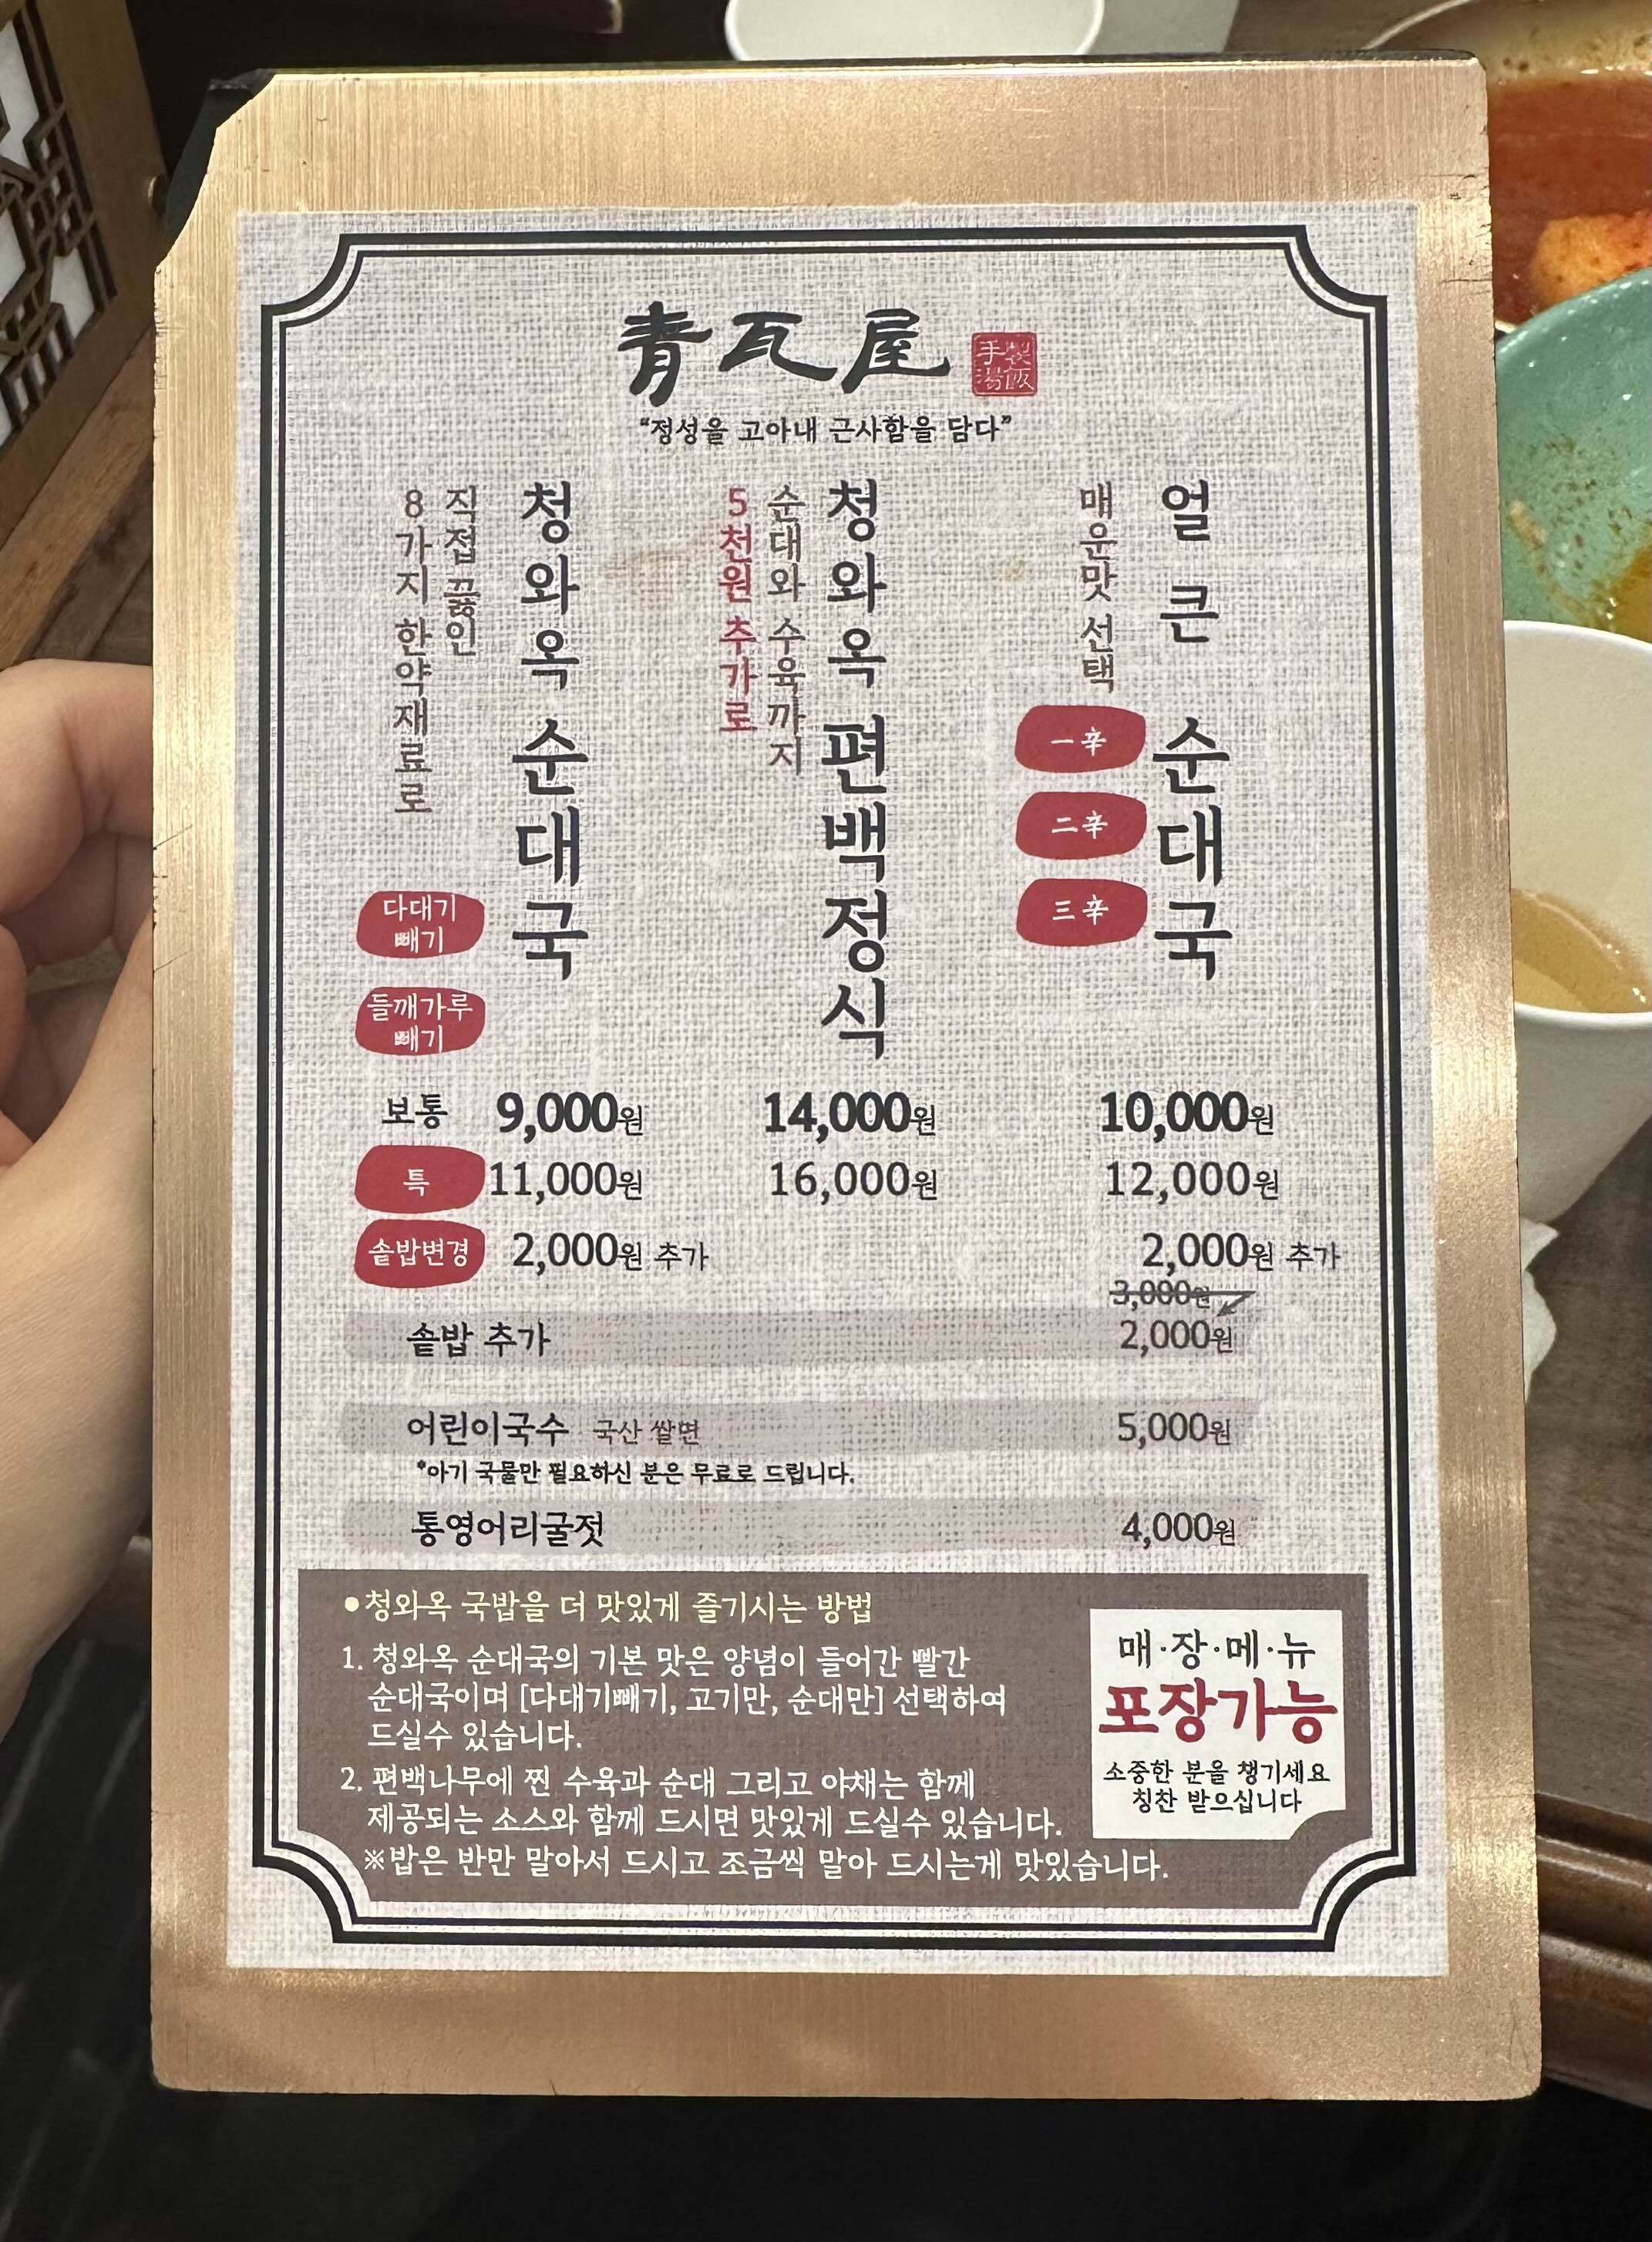 青瓦屋
手製
湯飯
“정성을 고아내 근사함을 담다”
청와옥 순대국
직접 끓인
8가지 한약재료로
다대기
빼기
들깨가루
빼기
청와옥 편백정식
순대와 수육까지
5천원 추가로
얼큰 순대국
매운맛 선택
一辛
二辛
三辛
보통 9,000원 14,000원 10,000원
특 11,000원 16,000원 12,000원
솥밥변경 2,000원 추가 2,000원 추가
3,000원
솥밥 추가 2,000원
어린이국수 국산 쌀면 5,000원
*아기 국물만 필요하신 분은 무료로 드립니다.
통영어리굴젓 4,000원
•청와옥 국밥을 더 맛있게 즐기시는 방법
1. 청와옥 순대국의 기본 맛은 양념이 들어간 빨간
순대국이며 [다대기빼기, 고기만, 순대만] 선택하여
드실수 있습니다.
2. 편백나무에 찐 수육과 순대 그리고 야채는 함께
제공되는 소스와 함께 드시면 맛있게 드실수 있습니다.
※밥은 반만 말아서 드시고 조금씩 말아 드시는게 맛있습니다.
매·장·메·뉴
포장가능
소중한 분을 챙기세요
칭찬 받으십니다